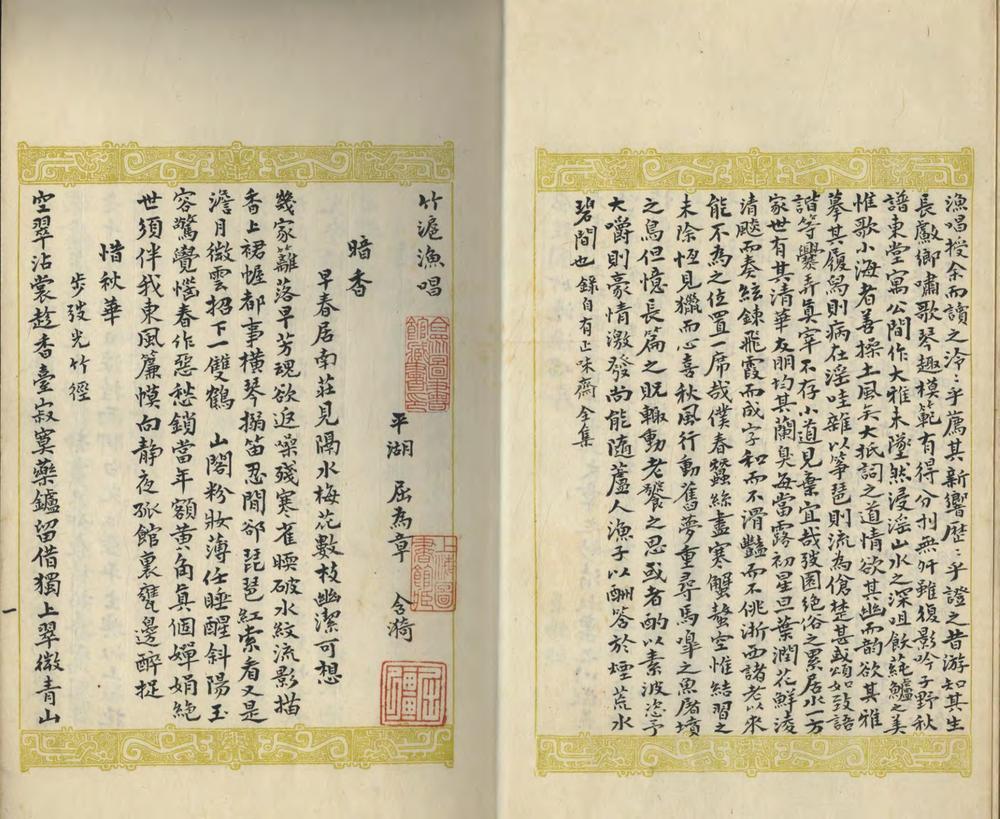 漁唱授余而讀之泠:乎薦其新響歷:乎證之昔游知其生
長鸝鄉嘯歌琴趣模範有得分刌無舛雖復影吟子野秋
譜東堂寓公間作大雅未墜然浸淫山水之深咀飲蒓鱸之美
惟歌小海者善操土風矣大抵詞之道情欲其幽而韵欲其雅
摹其履舃則病在淫哇雜以箏琶則流為傖楚甚或頌如致語
諧等爨弄真宰不存小道見棄宜哉弢園絕俗之累居水一方
家世有其清華友朋均其蘭臭每當露初星旦葉潤花鮮淩
清飈而奏絃鍊飛霞而成字和而不滑豔而不佻浙西諸老以來
能不為之位置一席哉僕春蠶絲盡寒蟹螯空惟結習之
未除恆見獵而心喜秋風行動舊夢重尋馬嘷之魚屠墳
之鳥但憶長篇之既輒動老饕之思或者酌以素波恣予
大嚼則豪情激發尚能隨蘆人漁子以酬答於煙荒水
碧間也 錄自有正味齋全集
竹滬漁唱
平湖 屈為章 含漪
暗香
早春居南莊見隔水梅花數枝幽潔可想
幾家籬落早芳魂欲返噪殘寒雀暝破水紋流影描
香上裙幄都事橫琴搊笛忍閒郤琵琶紅索看又是
澹月微雲招下一雙鶴 山閣粉妝薄任睡醒斜陽玉
容驚覺惱春作惡愁鎖當年額黃角真個嬋娟絕
世須伴我東風簾幙向靜夜孤館裏甕邊醉捉
惜秋華
步弢光竹徑
空翠沾裳趁香臺寂寞藥鑪留借獨上翠微青山
一